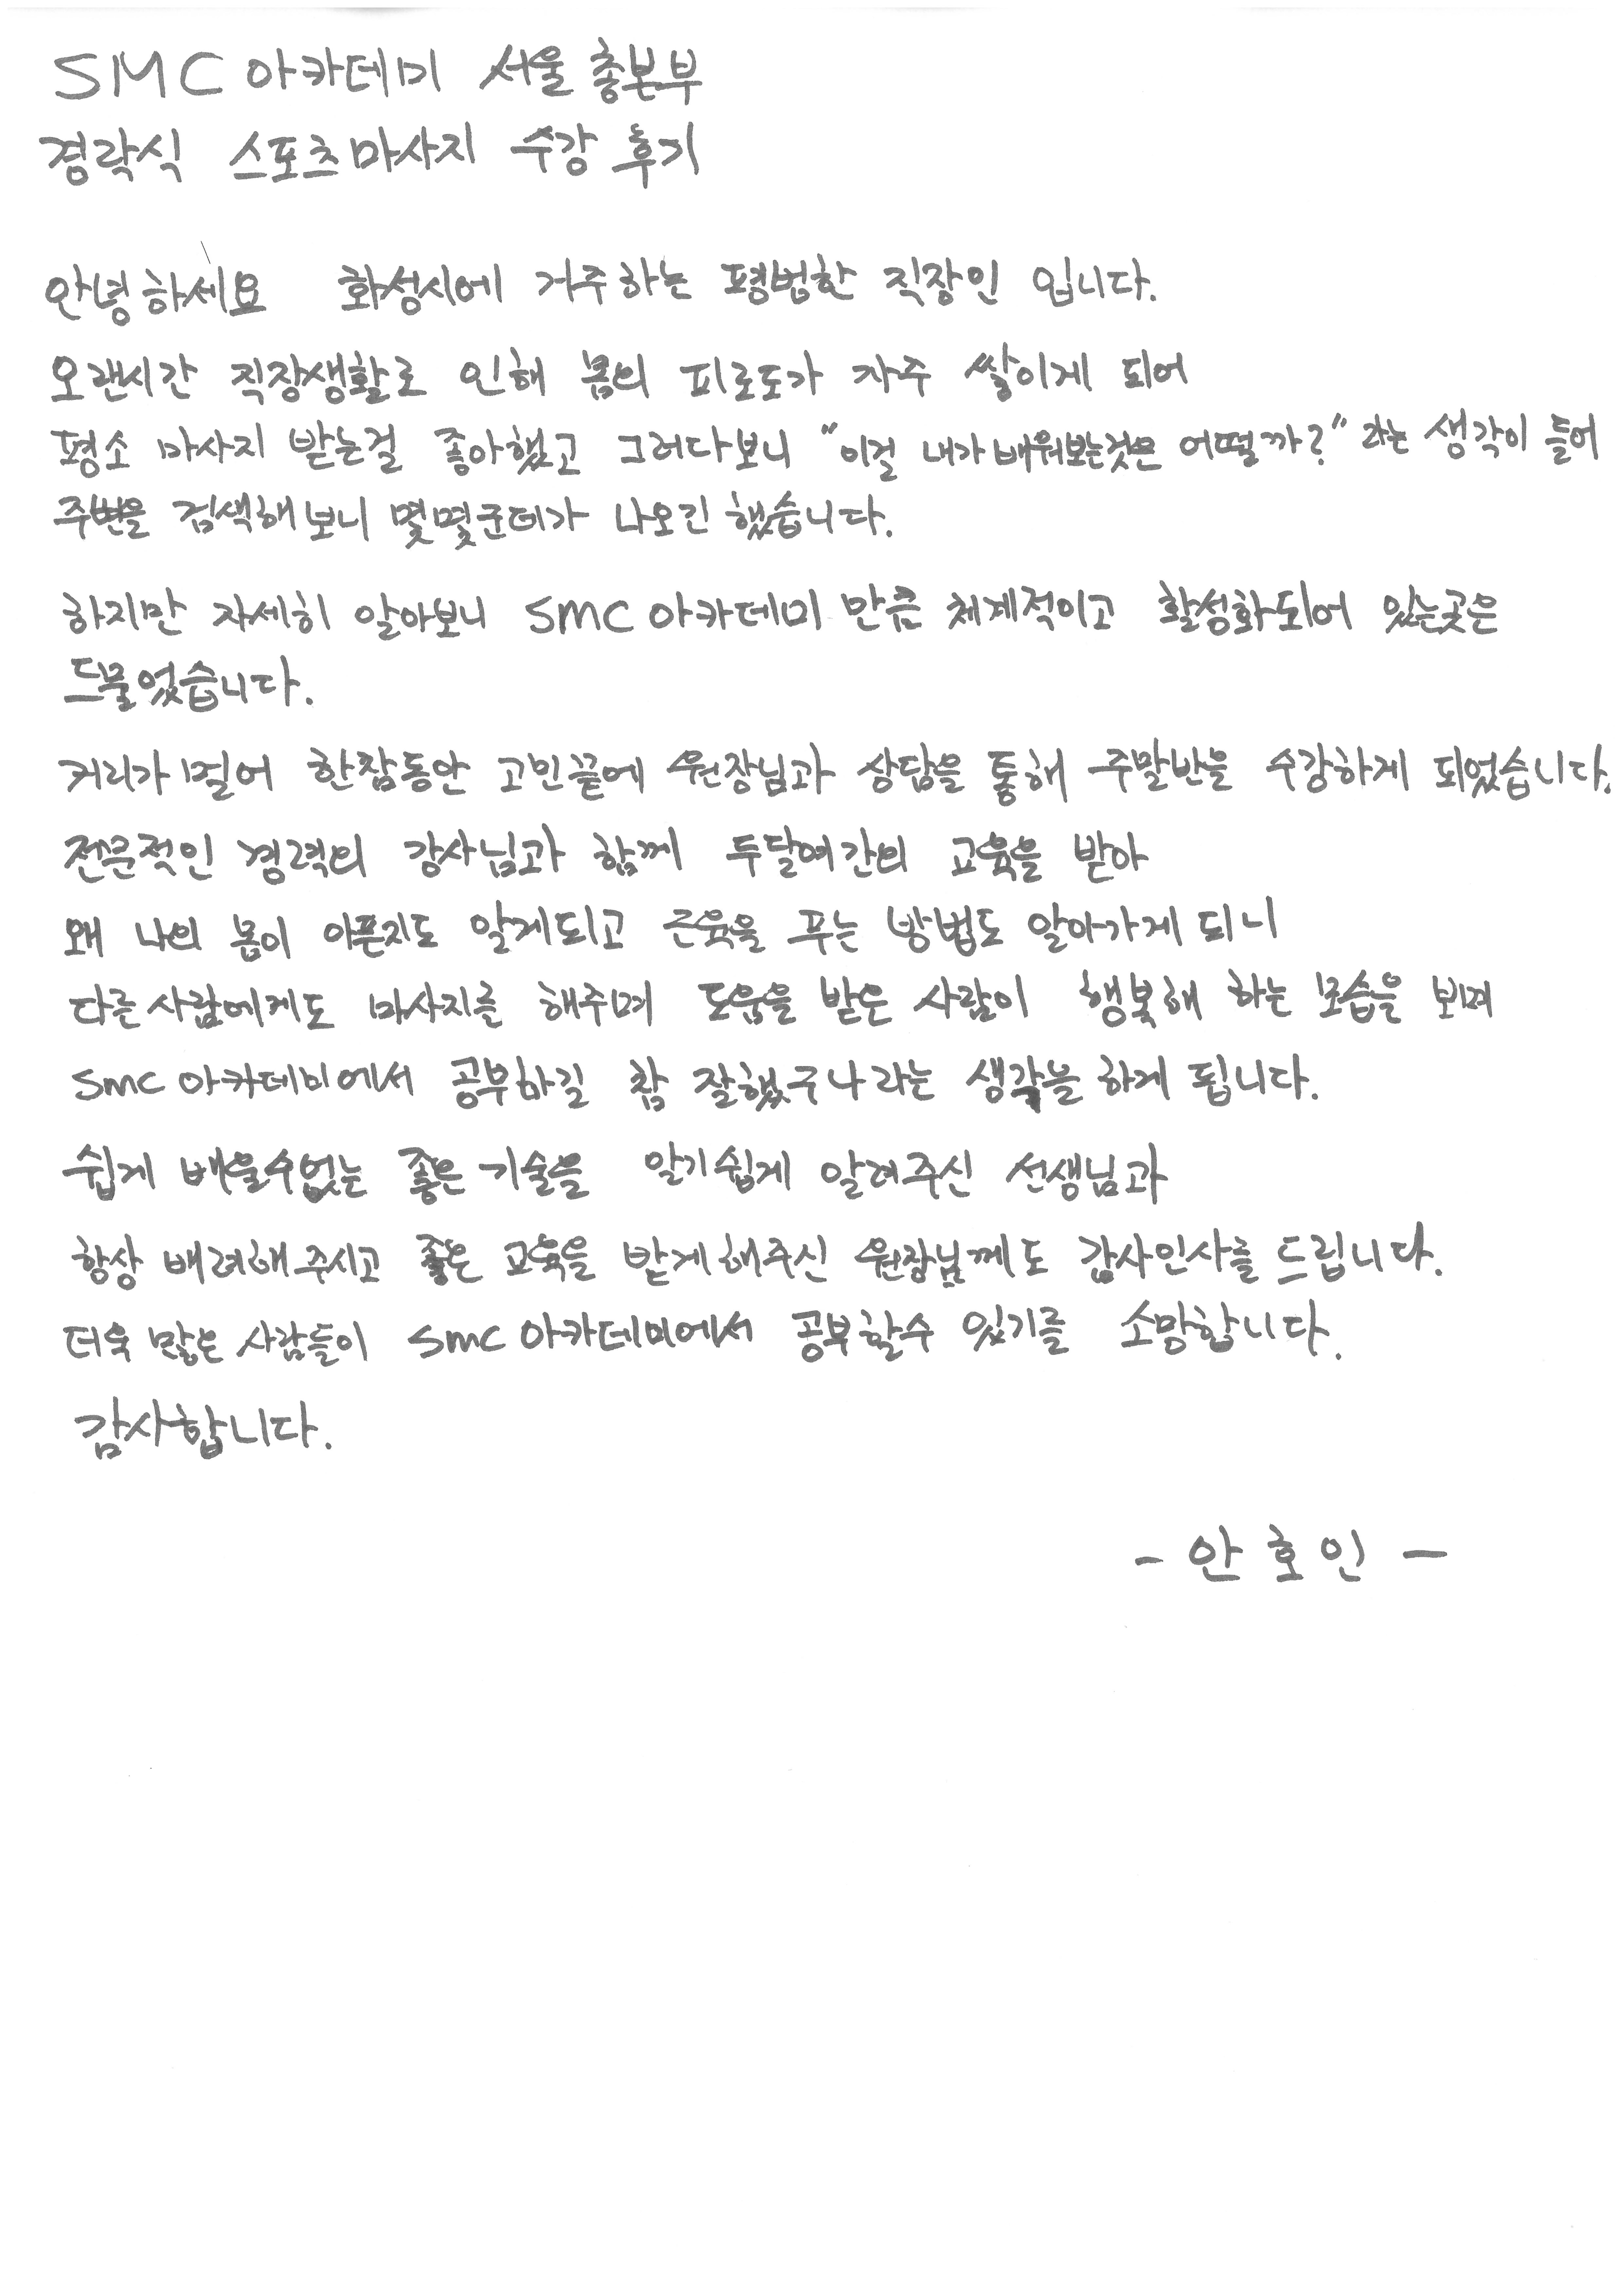 SMC 아카데미 서울 총본부
경락식 스포츠마사지 수강 후기
안녕하세요 화성시에 거주하는 평범한 직장인 입니다.
오랜시간 직장생활로 인해 몸의 피로도가 자주 쌓이게 되어
평소 마사지 받는걸 좋아했고 그러다보니 "이걸 내가 배워보는것은 어떨까?" 라는 생각이 들어
주변을 검색해보니 몇몇군데가 나오긴 했습니다.
하지만 자세히 알아보니 SMC 아카데미 만큼 체계적이고 활성화되어 있는곳은
드물었습니다.
거리가 멀어 한참동안 고민끝에 원장님과 상담을 통해 주말반을 수강하게 되었습니다.
전문적인 경력의 강사님과 함께 두달여간의 교육을 받아
왜 나의 몸이 아픈지도 알게되고 근육을 푸는 방법도 알아가게 되니
다른 사람에게도 마사지를 해주며 도움을 받은 사람이 행복해 하는 모습을 보며
SMC 아카데미에서 공부하길 참 잘했구나 라는 생각을 하게 됩니다.
쉽게 배울수없는 좋은 기술을 알기쉽게 알려주신 선생님과
항상 배려해주시고 좋은 교육을 받게해주신 원장님께도 감사인사를 드립니다.
더욱 많은 사람들이 SMC 아카데미에서 공부할수 있기를 소망합니다.
감사합니다.
- 안호인 -